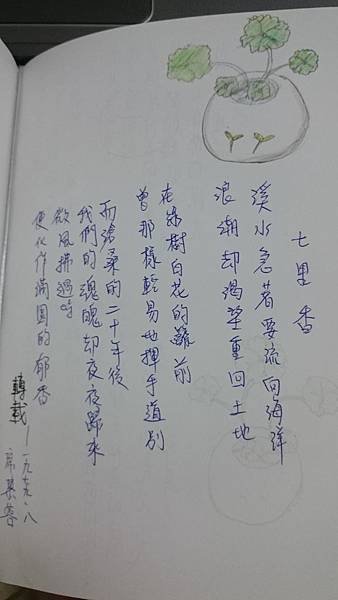 七里香
溪水急著要流向海洋
浪潮却渴望重回土地
在綠樹白花的籬前
曾那樣輕易地揮手道別
而滄桑的二十年後
我們的魂魄却夜夜歸來
微風拂過時
便化作滿園的郁香
轉載—一九七九、八
席慕蓉